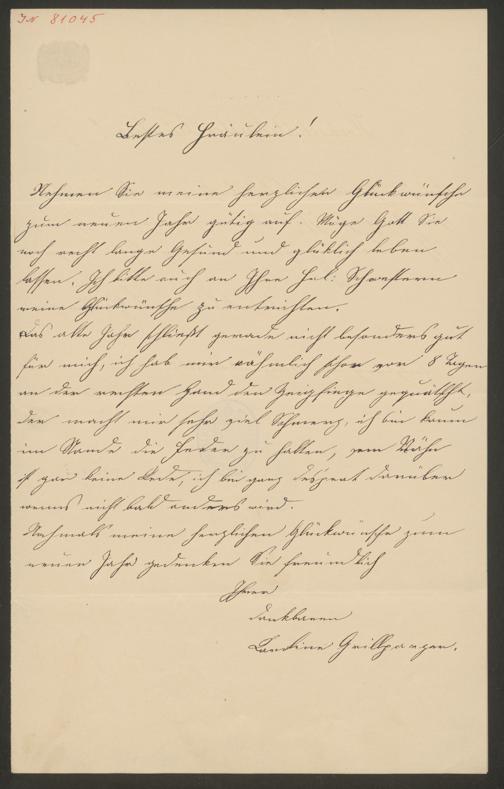 IN 81045
Bestes Fräulein!
Nehmen Sie meine herzlichen Glückwünsche
zum neuen Jahr gütig auf. Möge Gott Sie
noch recht lange Gesund und glüklich leben
lassen. Ich bitte auch an Ihre Schwestern
meine Glückwünsche zu entrichten.
Das alte Jahr schließt gerade nicht besonders gut
für mich, ich hab mir nähmlich schon vor 8 Tagen
an der rechten Hand den Zeigfinger gequätscht,
der macht mir sehr viel Schmerz, ich bin kaum
im Stande die Feder zu halten, vom Nähn
ist gar keine Rede, ich bin ganz desperat darüber
wenns nicht bald anders wird.
Nochmals meine herzlichen Glückwünsche zum
neuen Jahr gedenken Sie freundlich
Ihrer
dankbaren
Caroline Grillparzer.